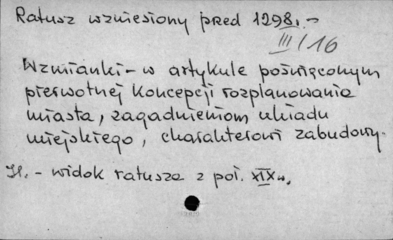 Ratusz wzniesiony pred 1298r.-
III/16
Wzmianki - w artykule poświęconym
pierwotnej koncepcji rozplanowania
miasta, zagadnieniom układu
miejskiego, charakterowi zabudowy.
Il. - widok ratusza z poł. XIXw.